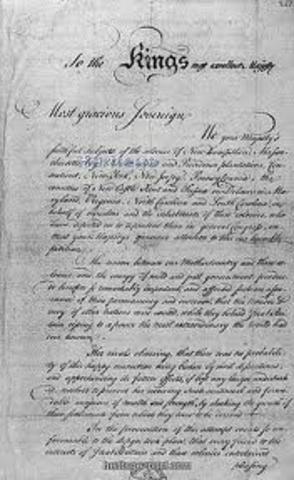 To the Kings most excellent Majesty
Most gracious Sovereign,
We your Majesty's
faithful subjects of the colonies of New Hampshire, Massa-
chusetts and Providence plantations, Con-
necticut, New York, New Jersey, Pennsylvania, the
counties of New Castle Kent and Sussex on Delaware, Ma-
ryland, Virginia, North Carolina and South Carolina, in
behalf of ourselves and the inhabitants of these colonies, who
have deputed us to represent them in general Congress, en-
treat your Majesty's gracious attention to this our humble
petition.
The union between our Mother country and these co-
lonies, and the energy of mild and just government, produced
benefits so remarkably important, and afforded such an assu-
rance of their permanency and increase, that the wonder &
envy of other nations were excited, while they beheld Great Bri-
tain rising to a power the most extraordinary the world had
ever known.
Her rivals observing, that there was no probabi-
lity of this happy connection being broken by civil dissentions,
and apprehending its future effects, if left any longer undisturb-
ed, resolved to prevent her receiving such continual and formi-
dable accessions of wealth and strength, by checking the growth of
these settlements from which they were to be derived.
In the prosecution of this attempt events so un-
favourable to the design took place, that every friend to the
interests of Great Britain and these colonies entertained
pleasing